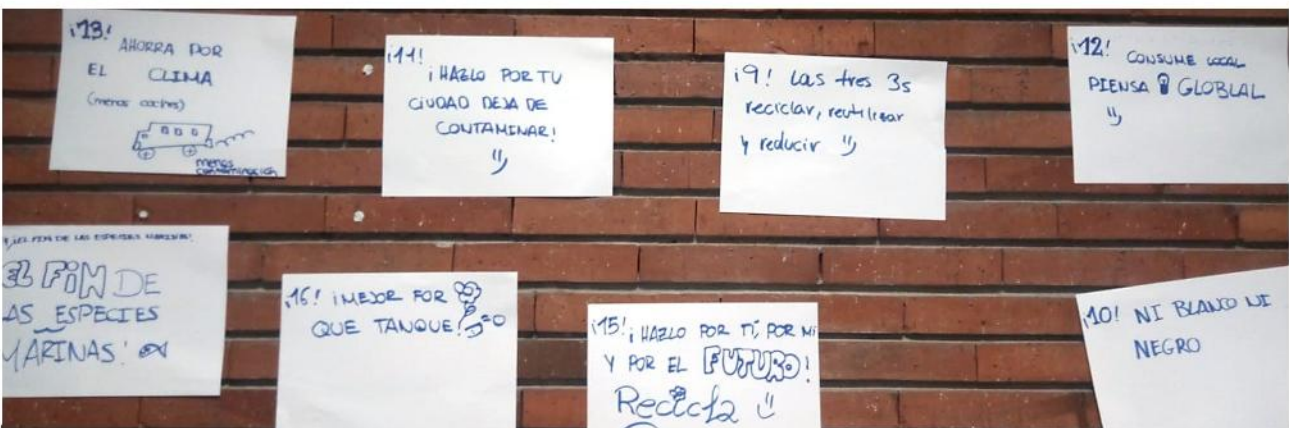 ¡13! AHORRA POR
EL CLIMA
(menos coches)
menos
contaminación
¡11!
¡HAZLO POR TU
CIUDAD DEJA DE
CONTAMINAR!
¡9! Las tres 3s
reciclar, reutilizar
y reducir
¡12! CONSUME LOCAL
PIENSA GLOBLAL
¡EL FIN DE LAS ESPECIES MARINAS!
EL FIN DE
AS ESPECIES
MARINAS!
¡16! ¡MEJOR FOR
QUE TANQUE!
¡15! ¡HAZLO POR TÍ, POR MI
Y POR EL FUTURO!
Recicla
¡10! NI BLANCO NI
NEGRO